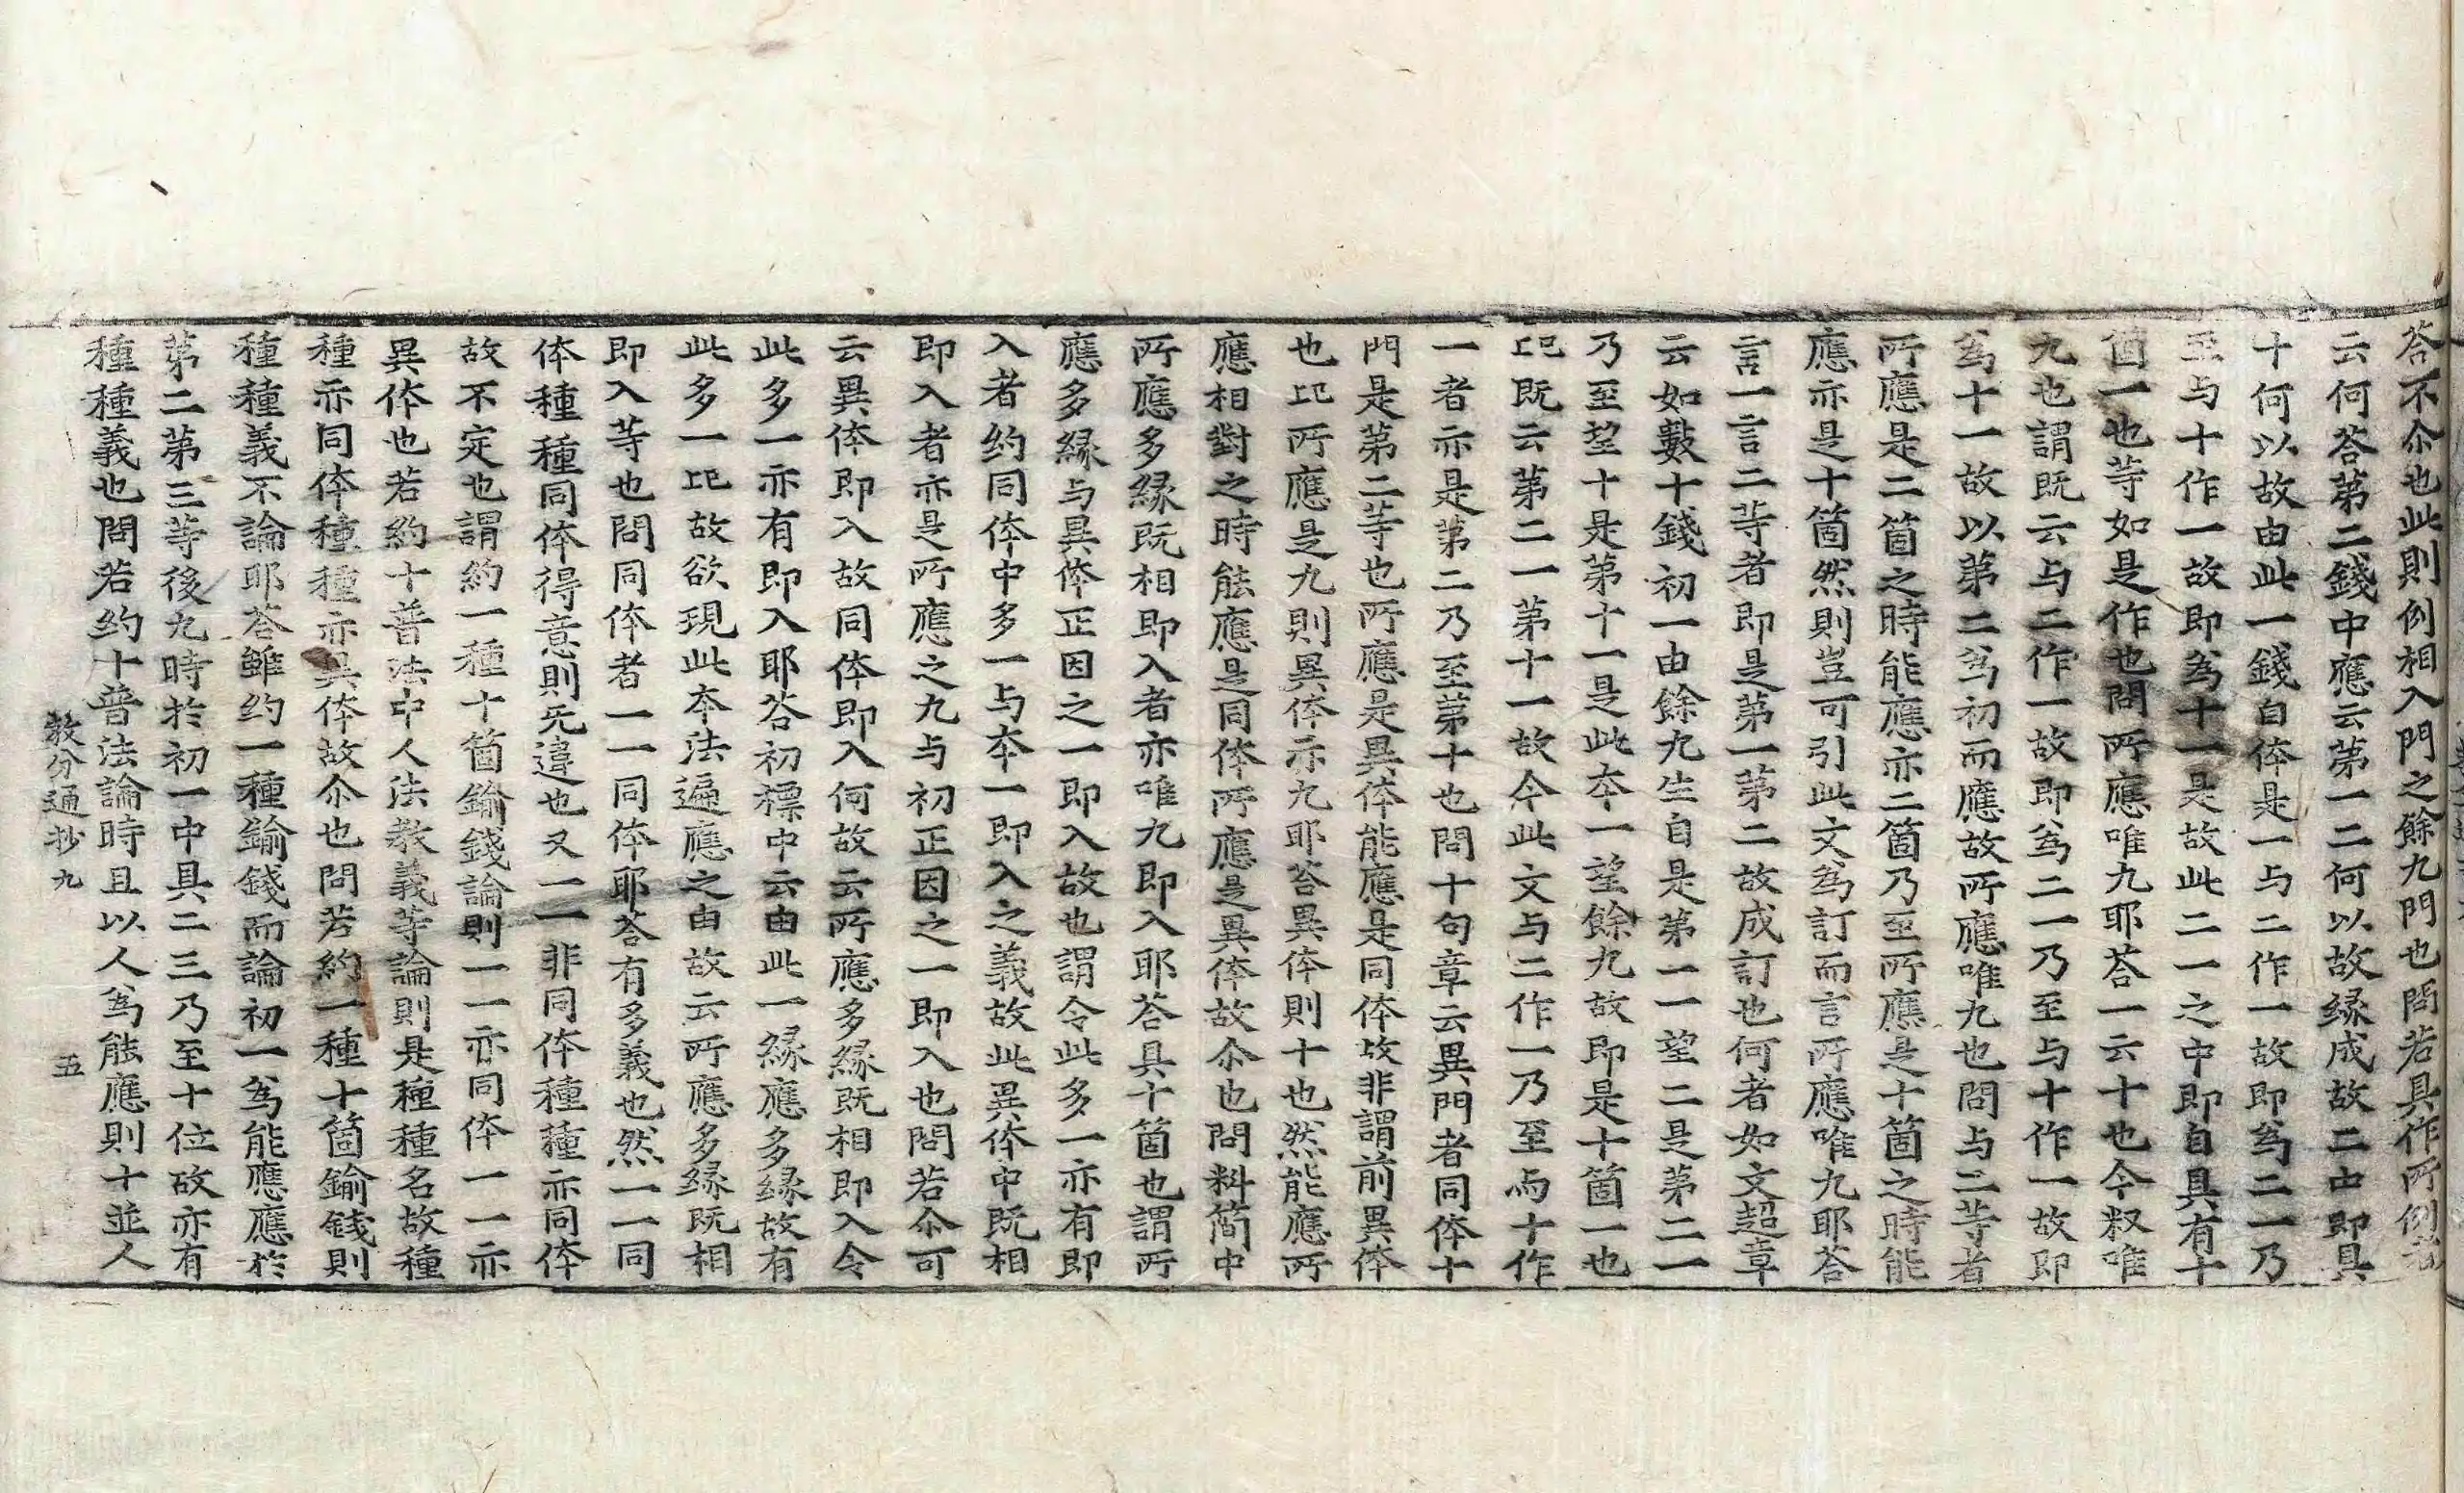 答不尒也此則例相入門之餘九門也問若具作所例者
云何答第二錢中應云第一二何以故縁成故二中即具
十何以故由此一錢自体是一与二作一故即爲二一乃
至与十作一故即爲十一是故此二一之中即自具有十
箇一也等如是作也問所應唯九耶答一云十也今釈唯
九也謂既云与二作一故即爲二一乃至与十作一故即
爲十一故以第二爲初而應故所應唯九也問与二等者
所應是二箇之時能應亦二箇乃至所應是十箇之時能
應亦是十箇然則豈可引此文爲訂而言所應唯九耶答
言一言二等者即是第一第二故成訂也何者如文超章
云如數十錢初一由餘九生自是第一一望二是第二一
乃至望十是第十一是此本一望餘九故即是十箇一也
此既云第二一第十一故今此文与二作一乃至与十作
一者亦是第二乃至第十也問十句章云異門者同体十
門是第二等也所應是異体能應是同体故非謂前異体
也此所應是九則異体亦九耶答異体則十也然能應所
應相對之時能應是同体所應是異体故尒也問料簡中
所應多縁既相即入者亦唯九即入耶答具十箇也謂所
應多縁与異体正因之一即入故也謂令此多一亦有即
入者約同体中多一与本一即入之義故此異体中既相
即入者亦是所應之九与初正因之一即入也問若尒可
云異体即入故同体即入何故云所應多縁既相即入令
此多一亦有即入耶答初標中云由此一縁應多縁故有
此多一此故欲現此本法遍應之由故云所應多縁既相
即入等也問同体者一一同体耶答有多義也然一一同
体種種同体得意則无違也又一一非同体種種亦同体
故不定也謂約一種十箇鍮錢論則一一亦同体一一亦
異体也若約十普法中人法教義等論則是種種名故種
種亦同体種種亦異体故尒也問若約一種十箇鍮錢則
種種義不論耶答雖约一種鍮錢而論初一爲能應應於
第二第三等後九時於初一中具二三乃至十位故亦有
種種義也問若约十普法論時且以人爲能應則十並人
教分通抄九　五